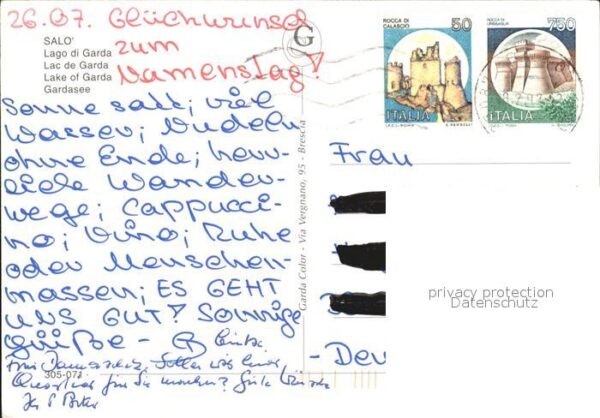 26.07. Glückwunsch
zum
Namenstag!
SALO'
Lago di Garda
Lac de Garda
Lake of Garda
Gardasee
G
ROCCA DI
CALASCIO
50
ITALIA
ROCCA DI
URBISAGLIA
750
ITALIA
Sonne satt; viel
Wasser; Nudeln
ohne Ende; herr-
liche Wander-
wege; Cappucci-
no; Vino; Ruhe
oder Menschen-
massen; ES GEHT
UNS GUT! Sonnige
Grüße -
305-071
Garda Color - Via Vergnano, 95 - Brescia
Frau
privacy protection
Datenschutz